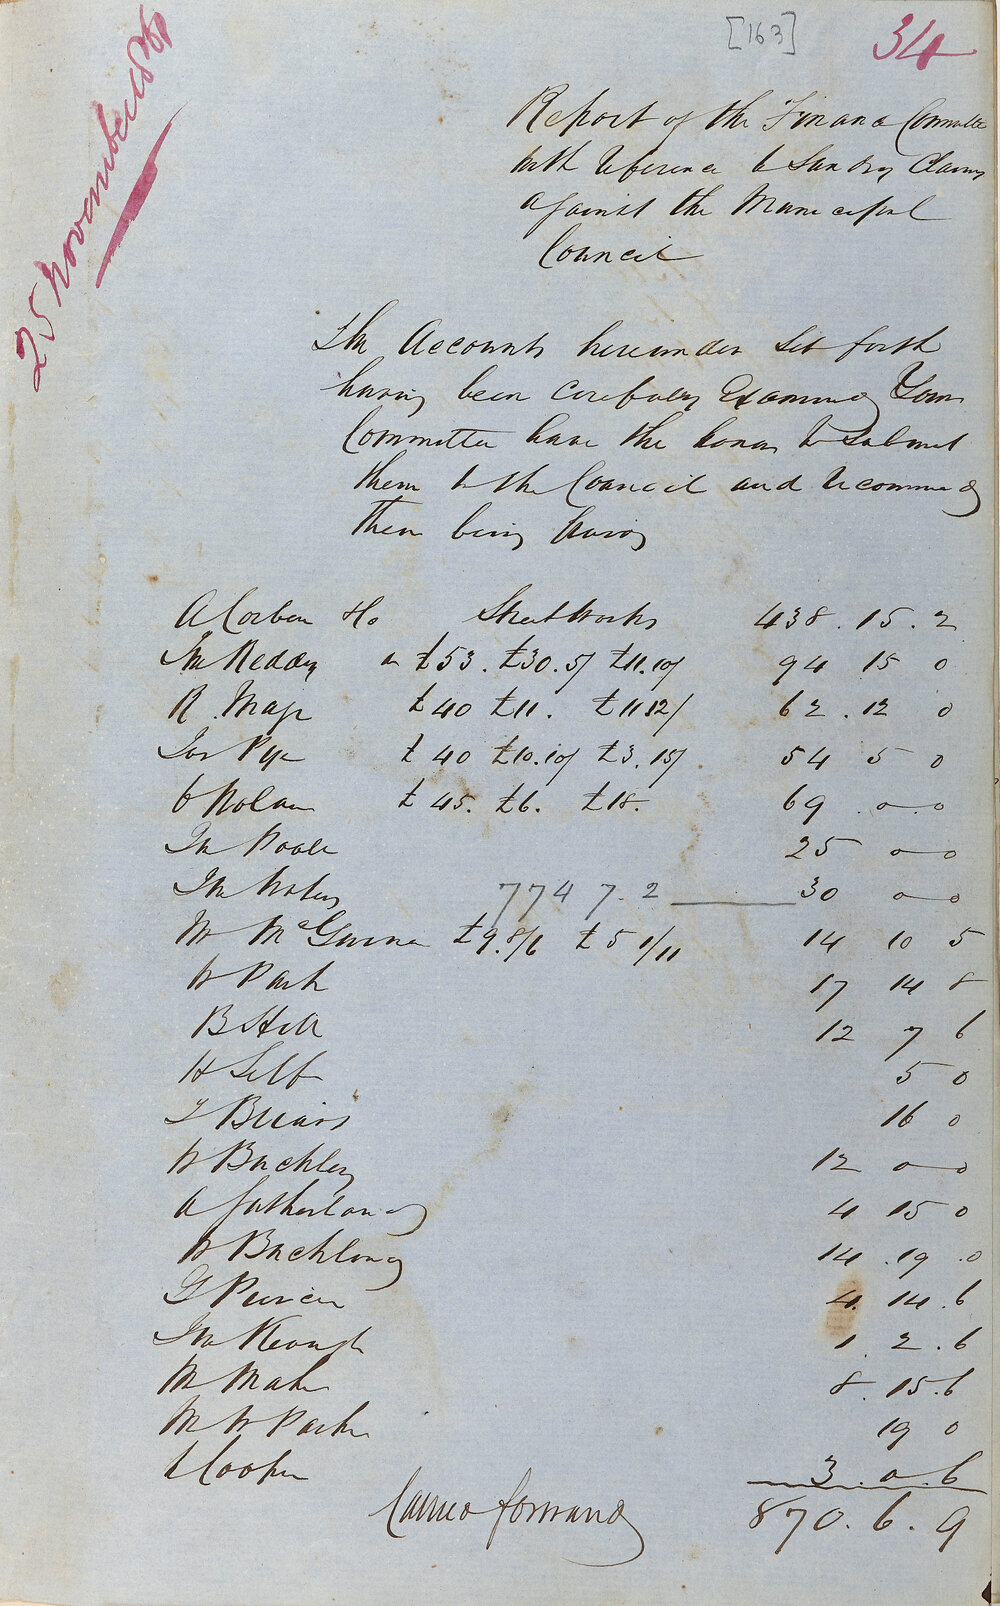 [163]
34
25 November 1861
Report of the Finance Committee
with reference to Sundry Claims
against the Municipal
Council
The Accounts hereunder set forth
having been carefully Examined Your
Committee have the honor to submit
them to the Council and recommend
them being paid
A Corben & Co Street Works 438 . 15 . 2
Jno Reddy on £53. £30.5/ £11.10/ 94 15 0
R. Mage £40 £11. £11 12/ 62 . 12 0
Jas Pye £40 £10.10/ £3.15/ 54 5 0
Nolan £45. £6. £18. 69 . 0 . 0
Jno Poole 25 0 0
Jno 774 7. 2 30 0 0
W McGuire £9.8/6 £5 1/11 14 10 5
W Park 17 14 8
B Hill 12 7 6
H Self 5 0
T Briars 16 0
W Buckley 12 0 0
A Sutherland 4 15 0
W Buckland 14 . 19 . 0
G Peirce 4. 14 . 6
Jno Keough 1 . 2 . 6
M Maher 8 . 15 . 6
M W Parker 19 0
Cooper 3 . 0 . 6
Carried forward 870 . 6 . 9